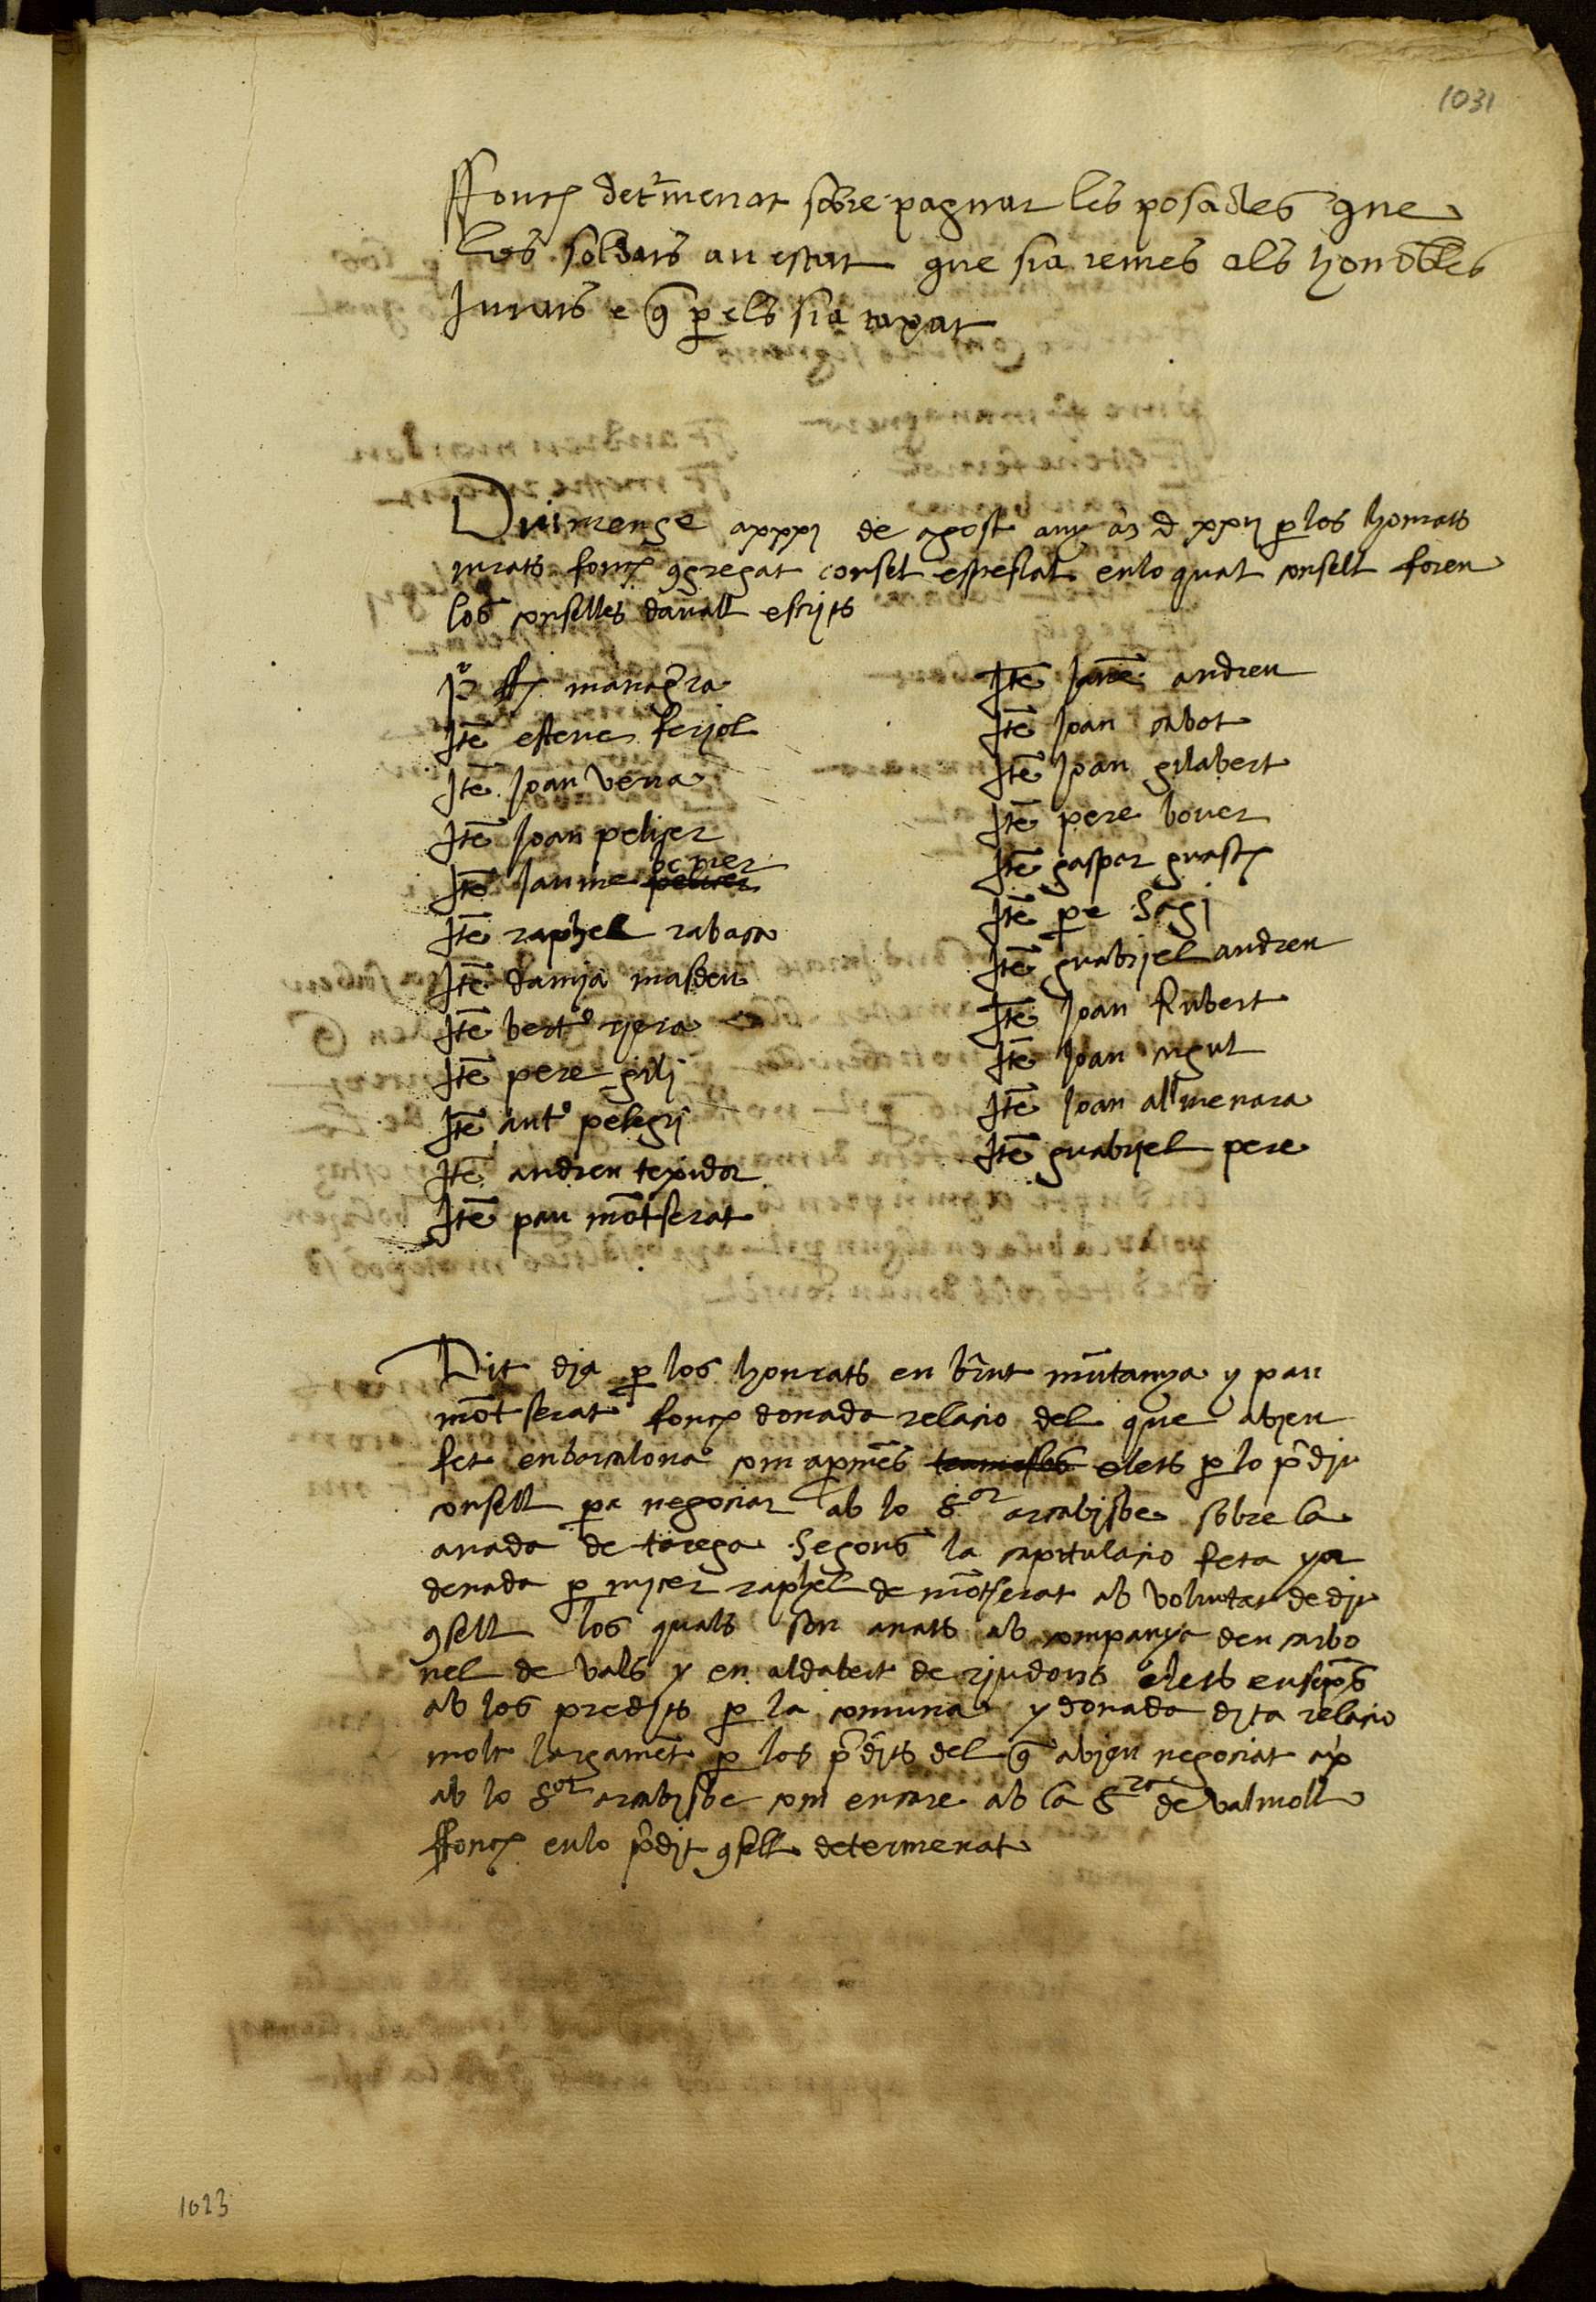 1031
ffonch det̃menat sobre pagnar les posades que
los soldats an estat que sia remes als honōbles
Jurats e q̃ p els sia taxat
Diumenge a xxxj de agost any  d xxij p los honrats
jurats fonch ɔgregat consel espesiat enlo qual consell foren
los conselles davall escrits
po ff managra
Itē esteve ferjol
Itē Joan verra
Itē Joan pelijer
Itē Jaume
Itē raphel rabasa
Itē damja masdeu
Itē berto rjera
Itē pere gilj
Itē anto pelegrj
Itē andreu texidor
Itē pau mōtserat
Itē Jaūe andreu
Itē Joan cabot
Itē Joan gilabert
Itē pere bover
Itē gaspar guasch
Itē pe Sagj
Itē guabrjel andreu
Itē Joan Rubert
Itē Joan cugul
Itē Joan allmenara
Itē guabrjel pere
Dit dja p los honrats en  mūtanya y pau
mōtserat fonch donada relacio del que abjen
fet enbarcalona com apmēs elets p lo p̃djt
consell pa negociar ab lo Sor arcabisbe sobre la
anada de tarega Segons la capitulacio feta y or
denada p mjcer raphel de mōtserat ab voluntat de djt
ɔsell los quals son anats ab companya den carbo
nel de vals y en aldabert de rjudons elets ensēps
ab los predjts p la comuna y donada djta relacio
molt largamēt p los p̃djts del q̃ abjen negociat axi
ab lo Sor arcabisbe com encare ab la Sra de valmoll
ffonch enlo p̃djt ɔsell determenat
1023